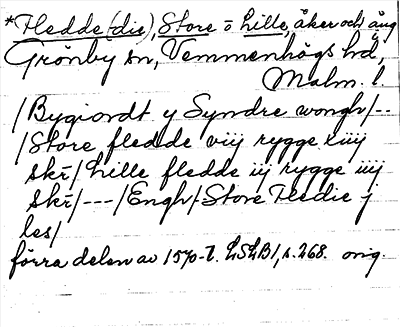 *Fledde (die), Store o hille, åker och äng
Grönby sn, Vemmenhögs hd,
Malm. l.
/Bygiordt y Syndre wongh/--
/Store fledde viij rygge xiiij
skr̄/ Lille fledde iij rygge iiij
skr̄/---/Engh/-Store Fledie j
les/
förra delen av 1570-t. LSLB1, s. 268. orig.